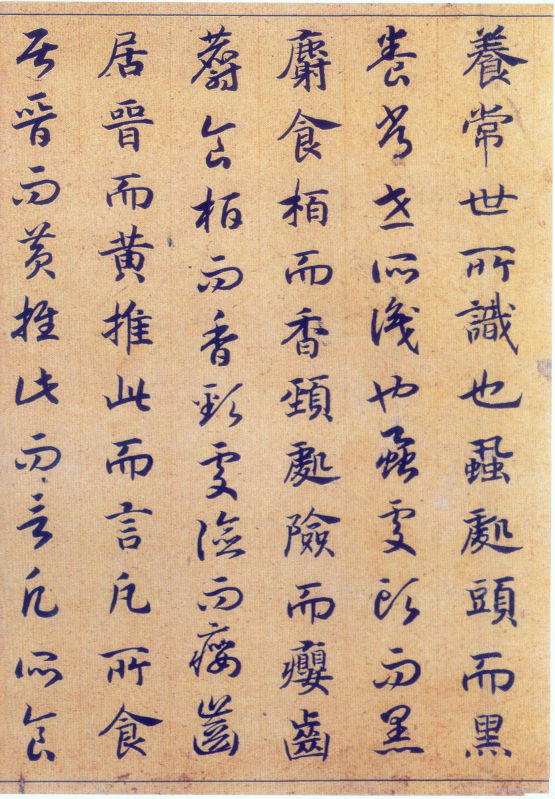 養常世所識也蝨處頭而黑
養常世所識也蝨處頭而黑
麝食栢而香頸處險而癭齒
麝食栢而香頸處險而癭齒
居晉而黄推此而言凡所食
居晉而黄推此而言凡所食